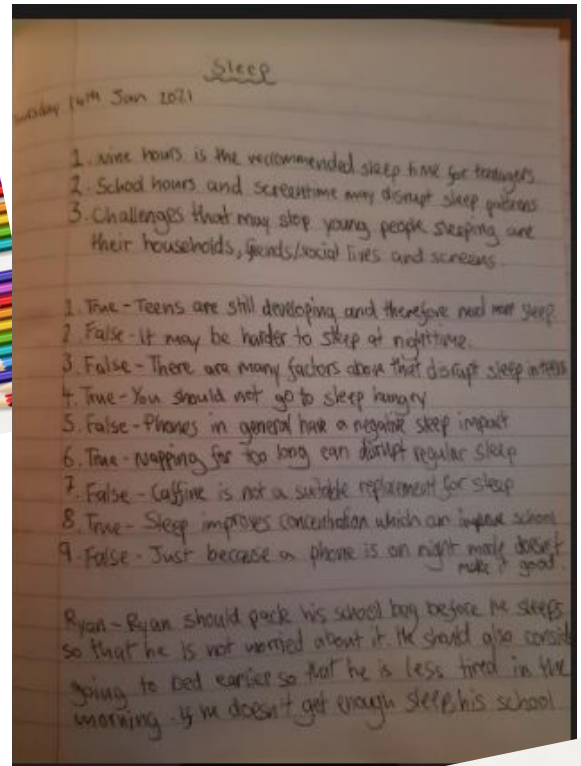 Sleep
14th Jan 2021
1. Nine hours is the reccommended sleep time for teenagers
2. School hours and screentime may disrupt sleep patterns
3. Challenges that may stop young people sleeping are
their households, friends/social lives and screens.
1. True - Teens are still developing and therefore need more sleep
2. False - It may be harder to sleep at nighttime.
3. False - There are many factors above that disrupt sleep in teens
4. True - You should not go to sleep hungry
5. False - Phones in general have a negative sleep impact
6. True - Napping for too long can disrupt regular sleep
7. False - Caffine is not a suitable replacement for sleep
8. True - Sleep improves concentration which can improve school
9. False - Just because a phone is on night mode doesnt
make it good.
Ryan - Ryan should pack his school bag before he sleeps
so that he is not worried about it. He should also consid
going to bed earlier so that he is less tired in the
morning. If he doesn't get enough sleep his school